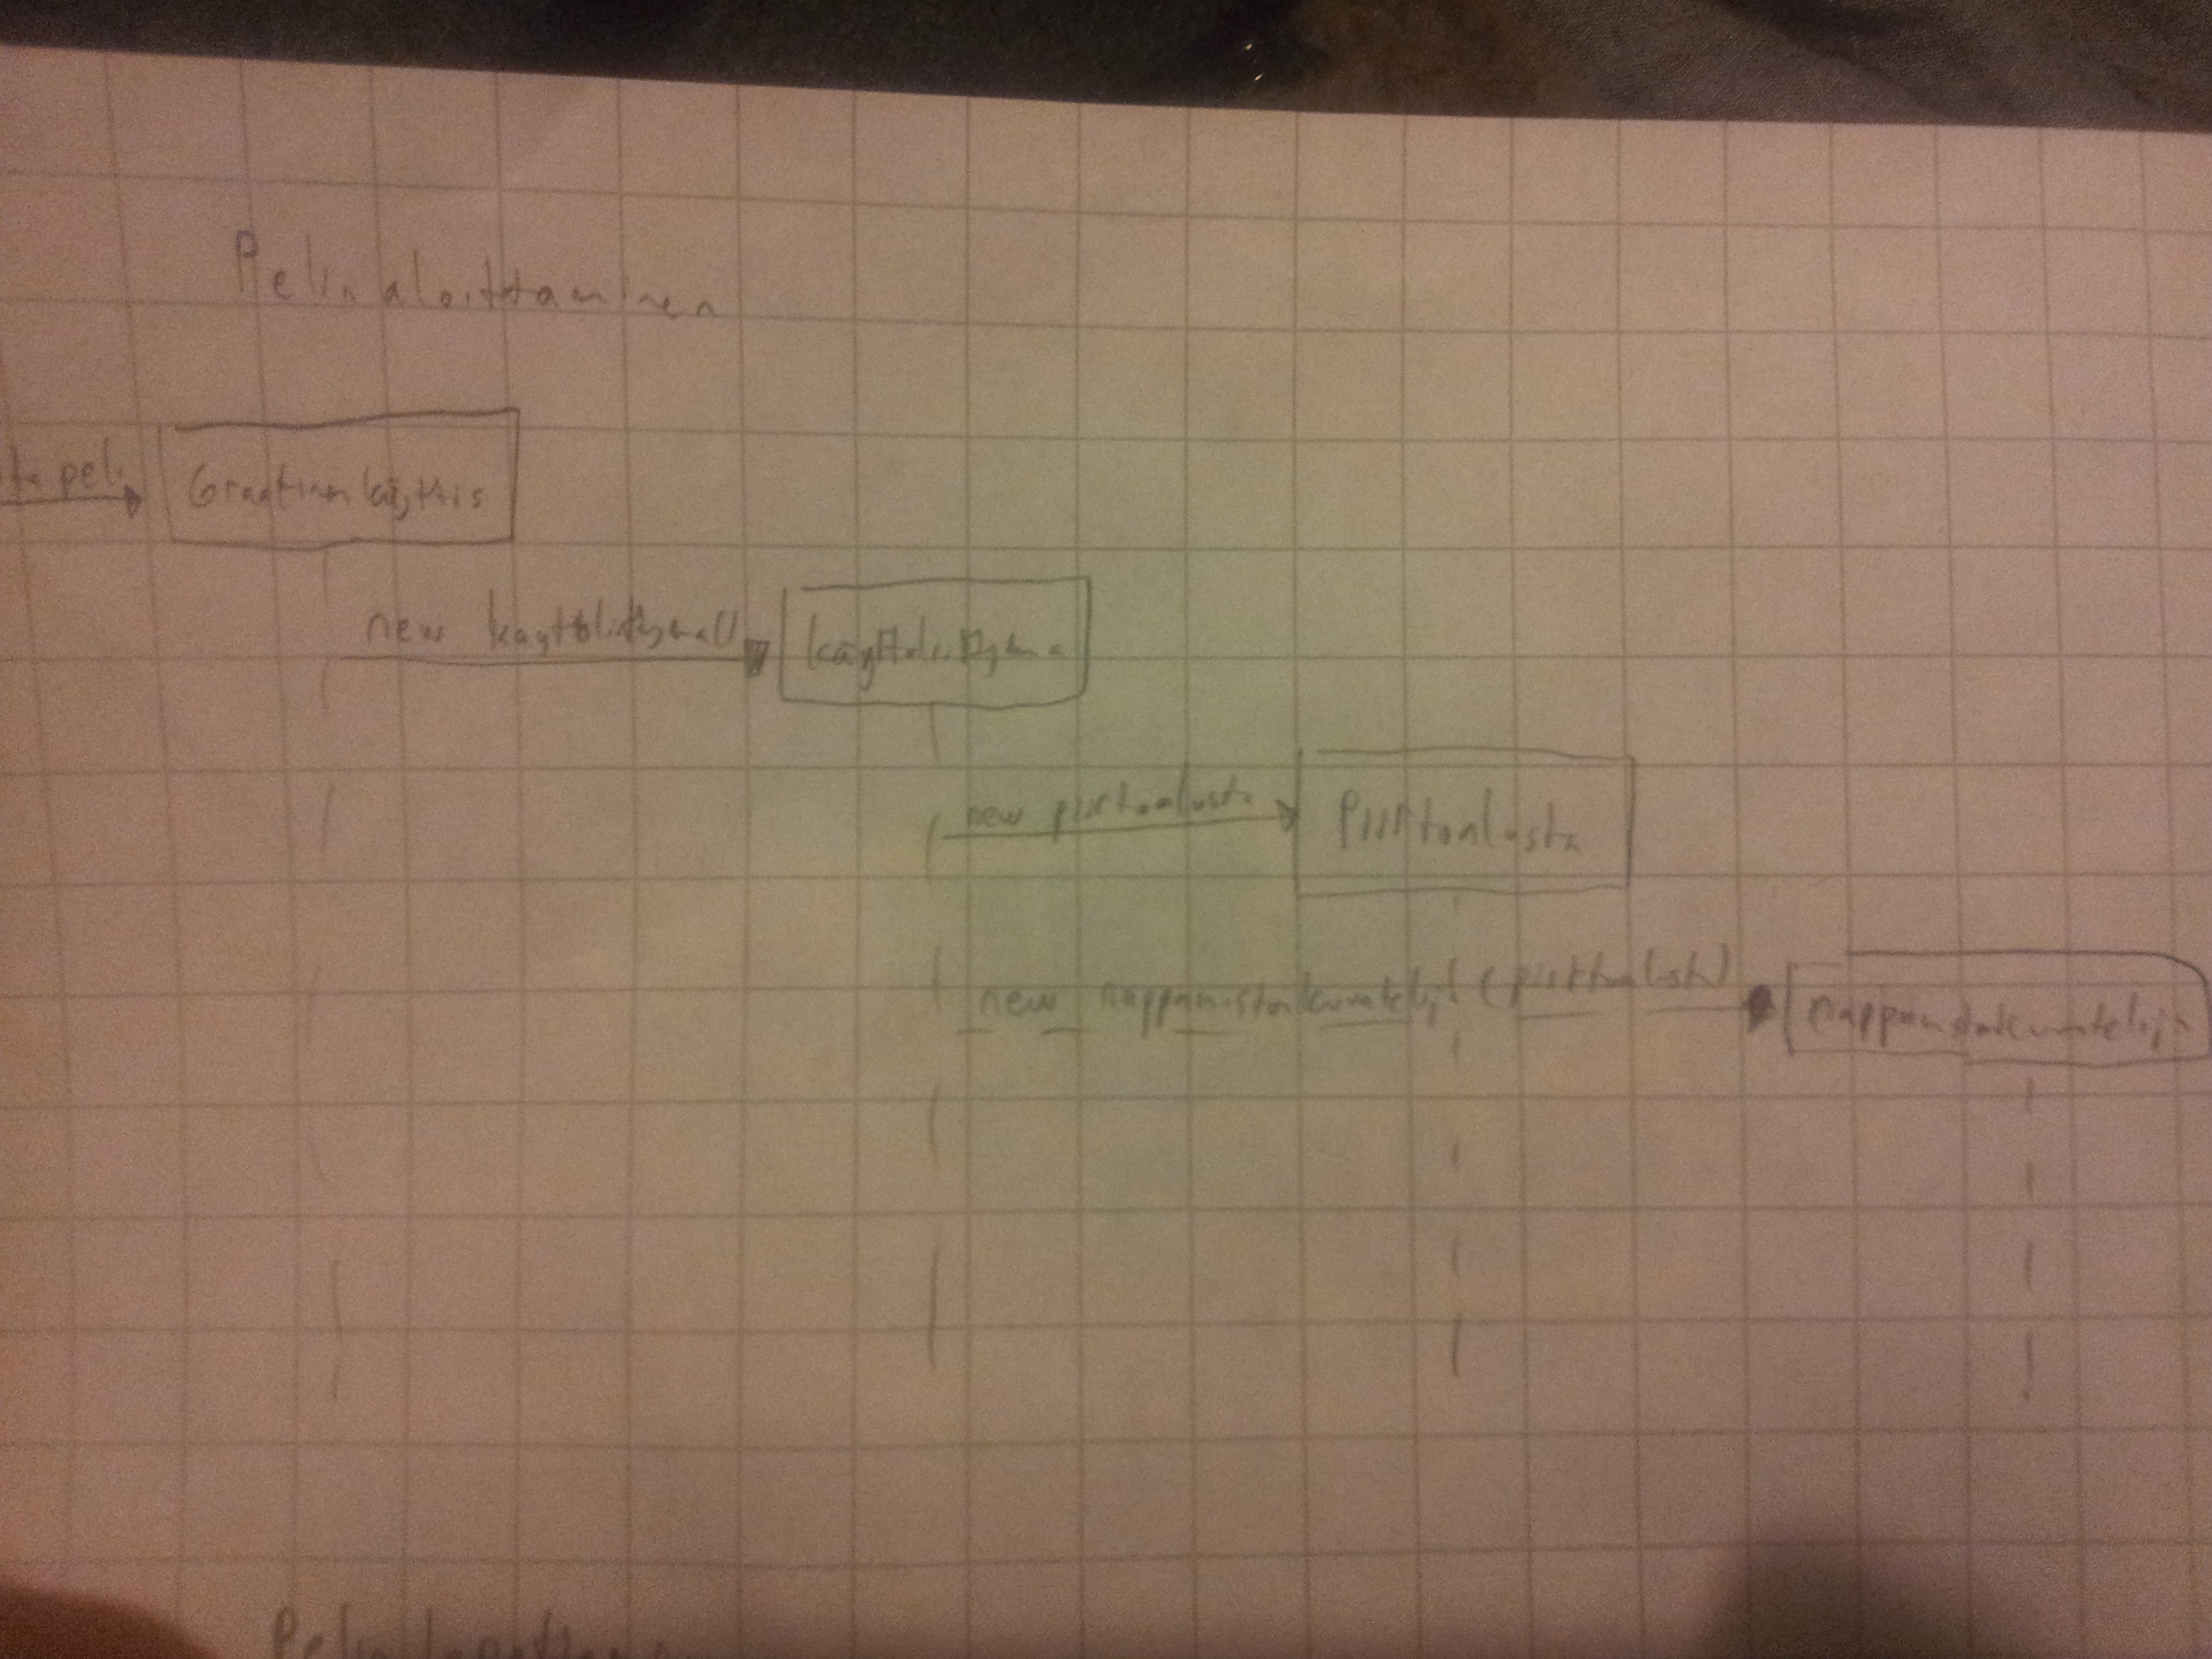 Pelin aloittaminen
ta peli
new käyttöliittymä()
Käyttöliittymä
new piirtoalusta
Piirtoalusta
new nappaimistonkuuntelija (piirtoalusta)
nappaimistonkuuntelija